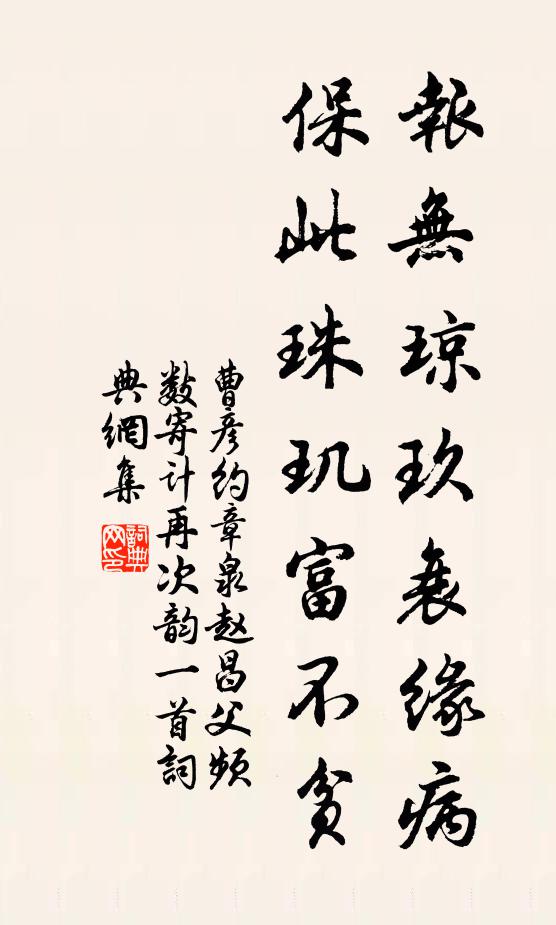 報無琼玖衰缘病
保此珠玑富不贫
曹彦约章泉赵昌父频
数寄计再次韵一首詞
典網集
詞典
网印